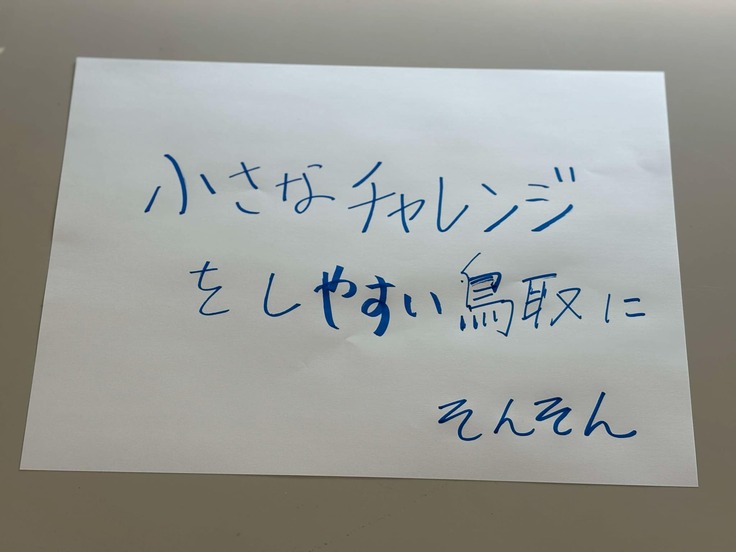 小さなチャレンジ
をしやすい鳥取に
そんそん